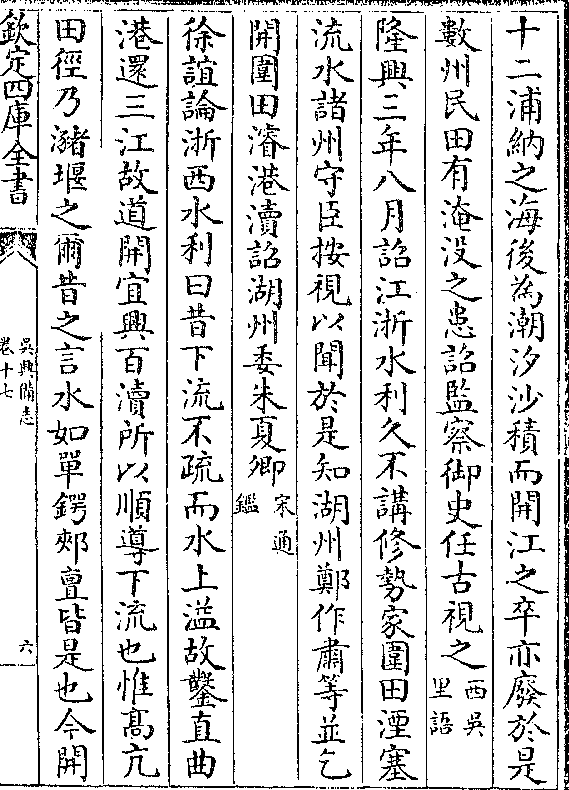 十二浦納之海後為潮汐沙積而開江之卒亦廢於是
數州民田有淹没之患詔監察御史任古視之西吳里語
隆興三年八月詔江浙水利久不講修勢家圍田湮塞
流水諸州守臣按視以聞於是知湖州鄭作肅等並乞
開圍田濬港瀆詔湖州委朱夏卿宋通鑑
徐誼論浙西水利曰昔下流不疏而水上溢故鑿直曲
港還三江故道開宜興百瀆所以順導下流也惟髙亢
田徑乃瀦堰之爾昔之言水如單鍔郟亶皆是也今開
欽定四庫全書
吳興備志
卷十七
六